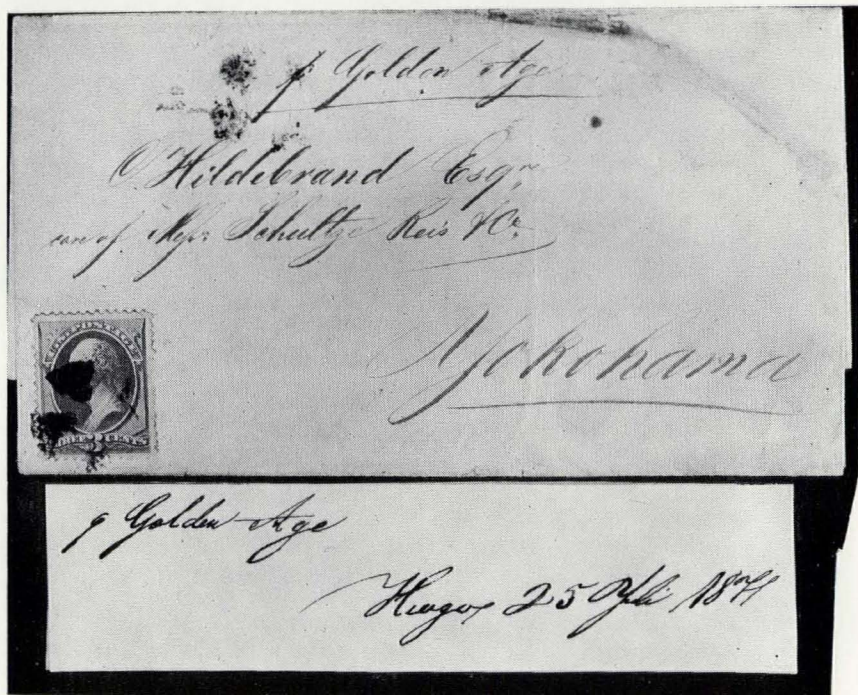 p Golden Age
O. Hildebrand Esqre
care of Messrs Schultze Reis & Co.
Yokohama
U.S. POSTAGE
THREE 3 CENTS
p Golden Age
Hiogo, 25 Juli 1871